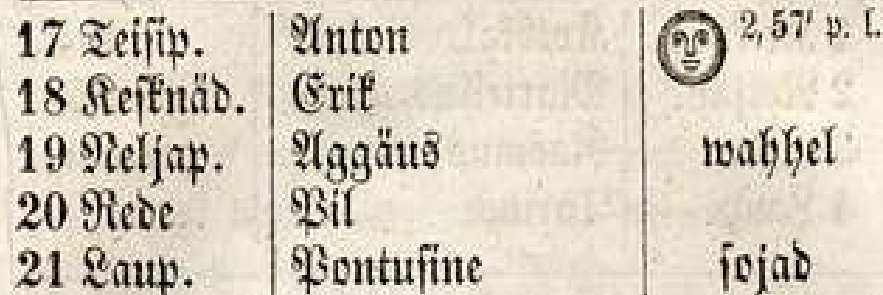 17 Teisip. Anton 2, 57' p. l.
18 Kesknäd. Erik
19 Neljap. Aggäus wahhel
20 Rede Pil
21 Laup. Pontusine sojad